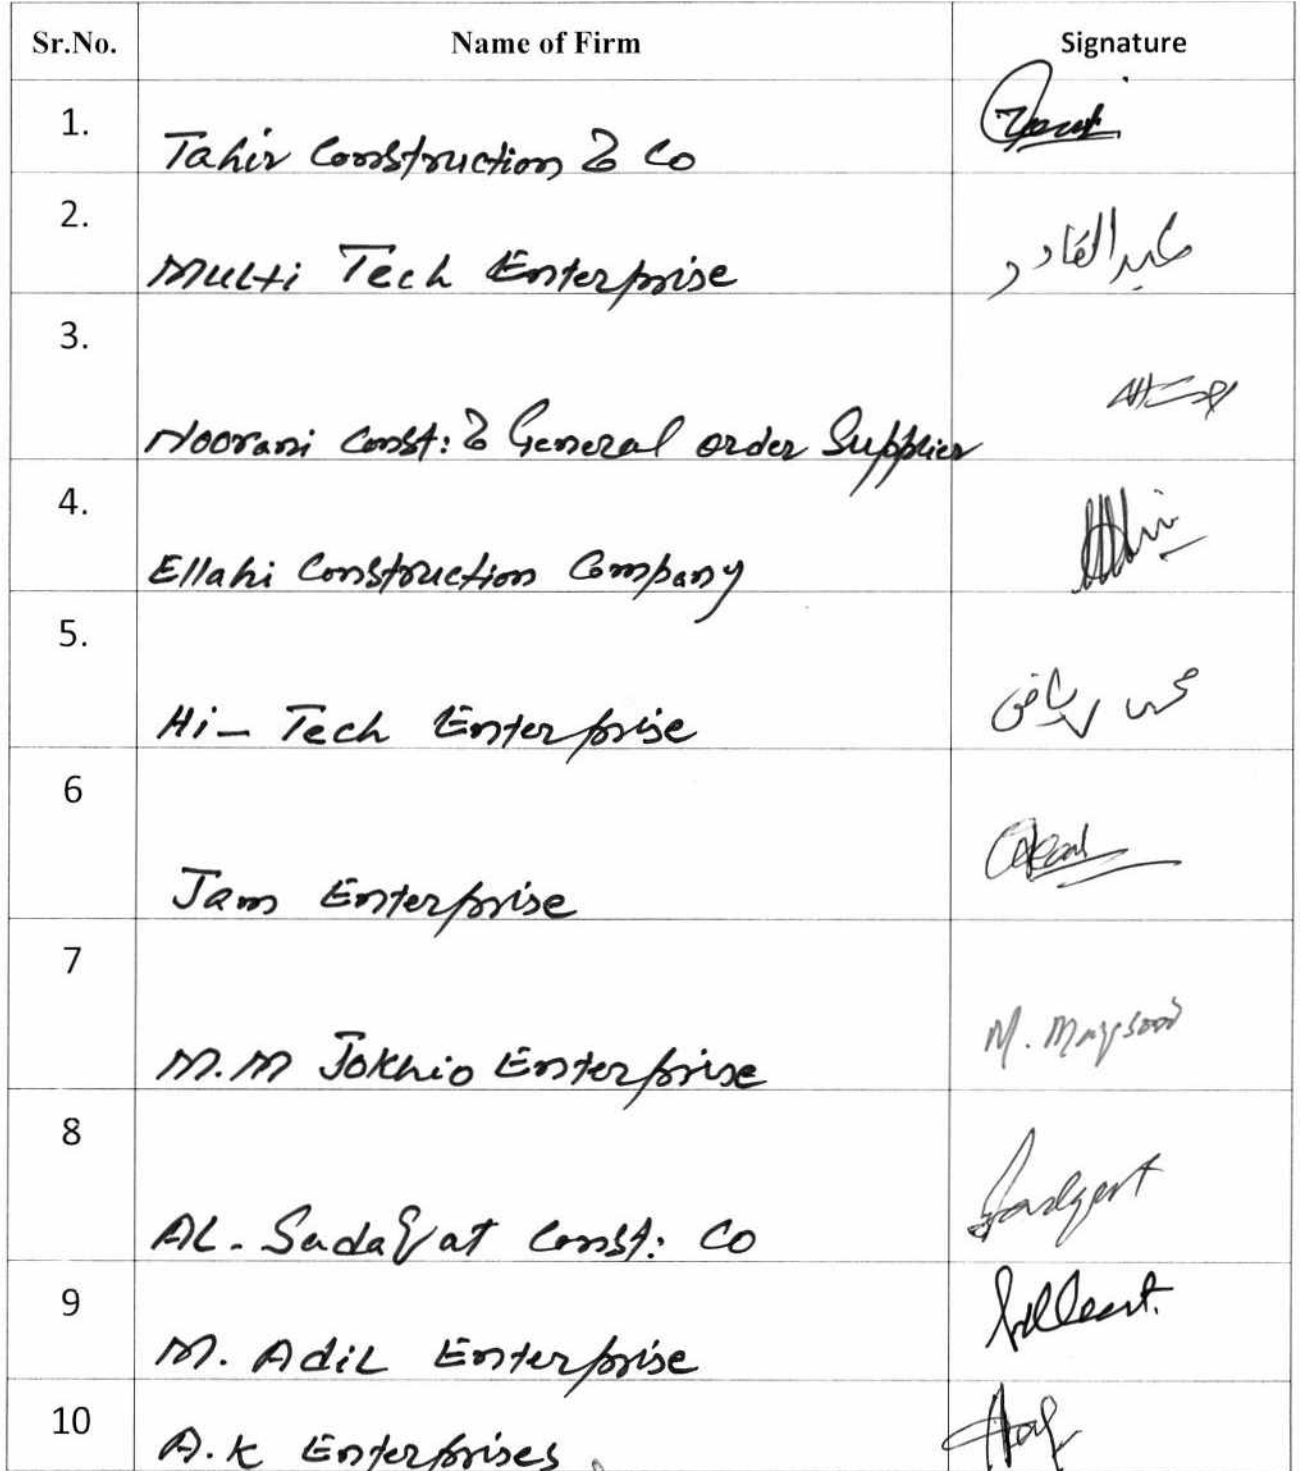 Sr.No. Name of Firm Signature
1. Tahir Construction & Co
2. Multi Tech Enterprise عبدالقادر
3. Noorani Const: & General order Supplier
4. Ellahi Construction Company
5. Hi-Tech Enterprise
6 Jam Enterprise
7 M.M Jokhio Enterprise M. Maqsood
8 AL-Sadaqat Const: Co
9 M. Adil Enterprise
10 A.K Enterprises